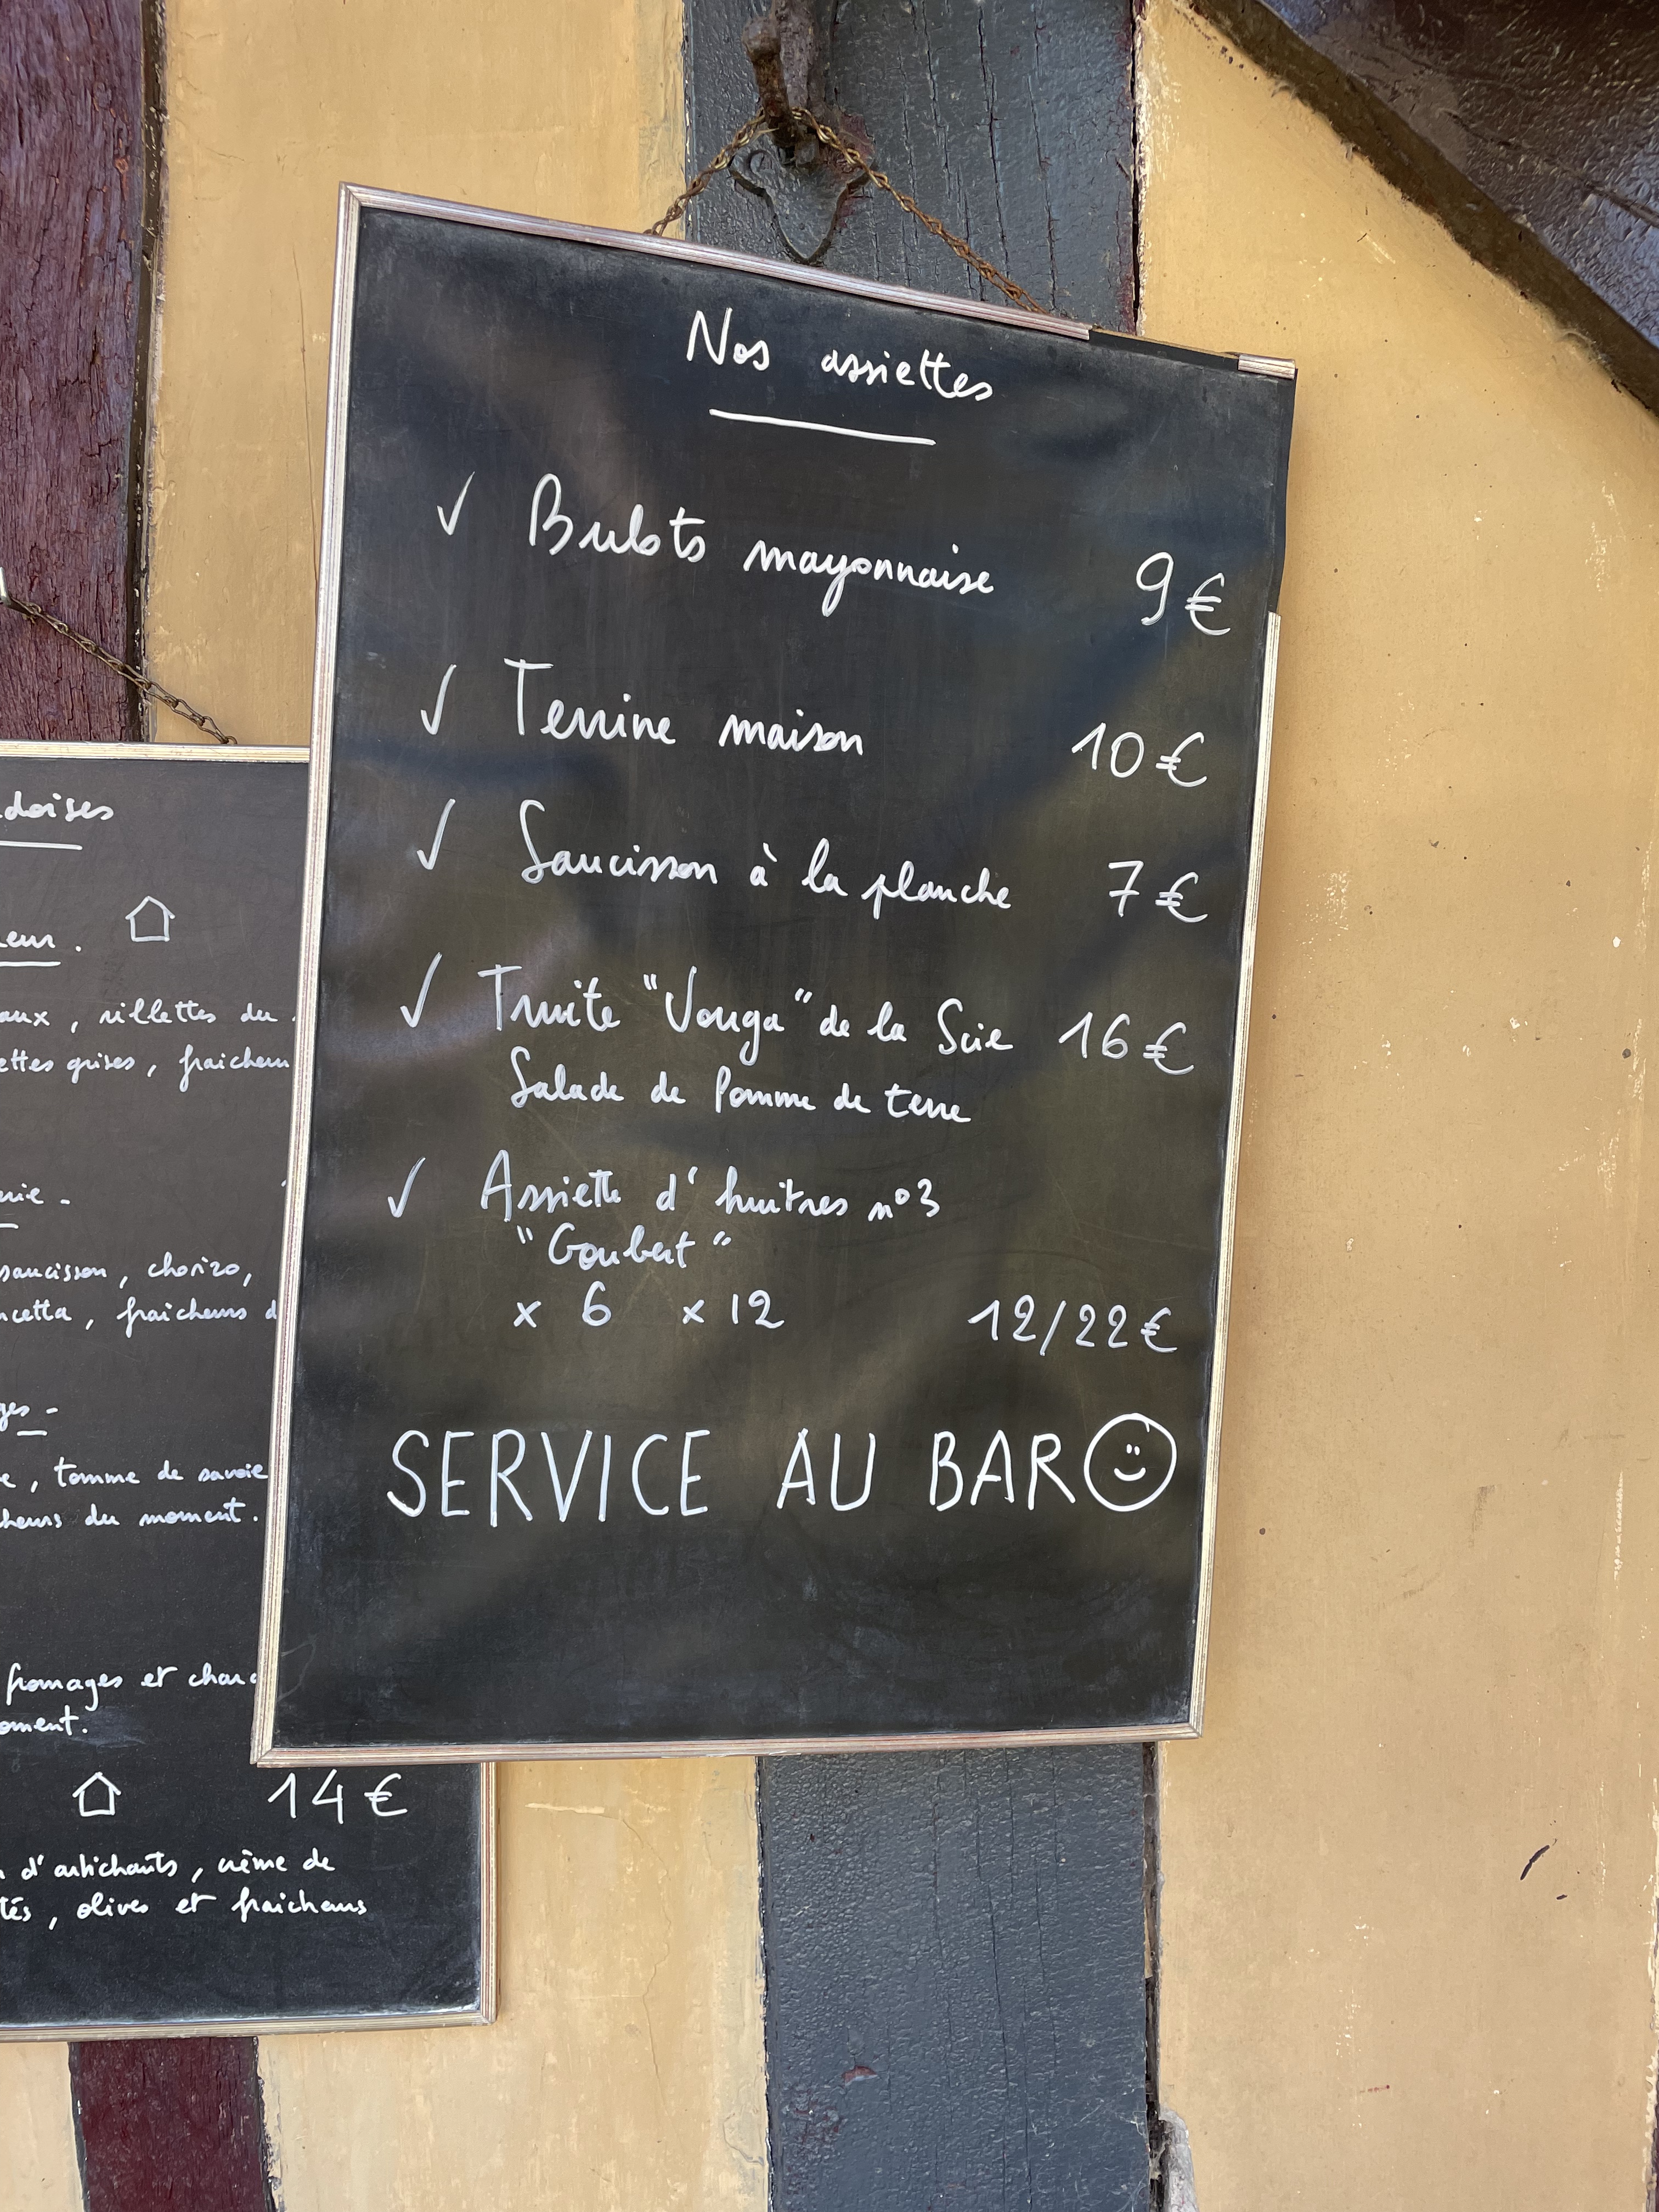 Nos assiettes
✓ Bulots mayonnaise 9€
✓ Terrine maison 10€
✓ Saucisson à la planche 7€
✓ Truite "Vouga" de la Scie 16€
Salade de Pomme de terre
✓ Assiette d'huîtres n°3
"Goubert"
x 6 x 12 12/22€
SERVICE AU BAR
doises
eur.
aux, rillettes du
ettes grises, fraicheur
rie -
saucisson, chorizo,
ncetta, fraicheurs d
ges -
e, tomme de savoie
cheurs du moment.
fromages et charc
oment.
14€
d'artichauts, crème de
tés, olives et fraicheurs